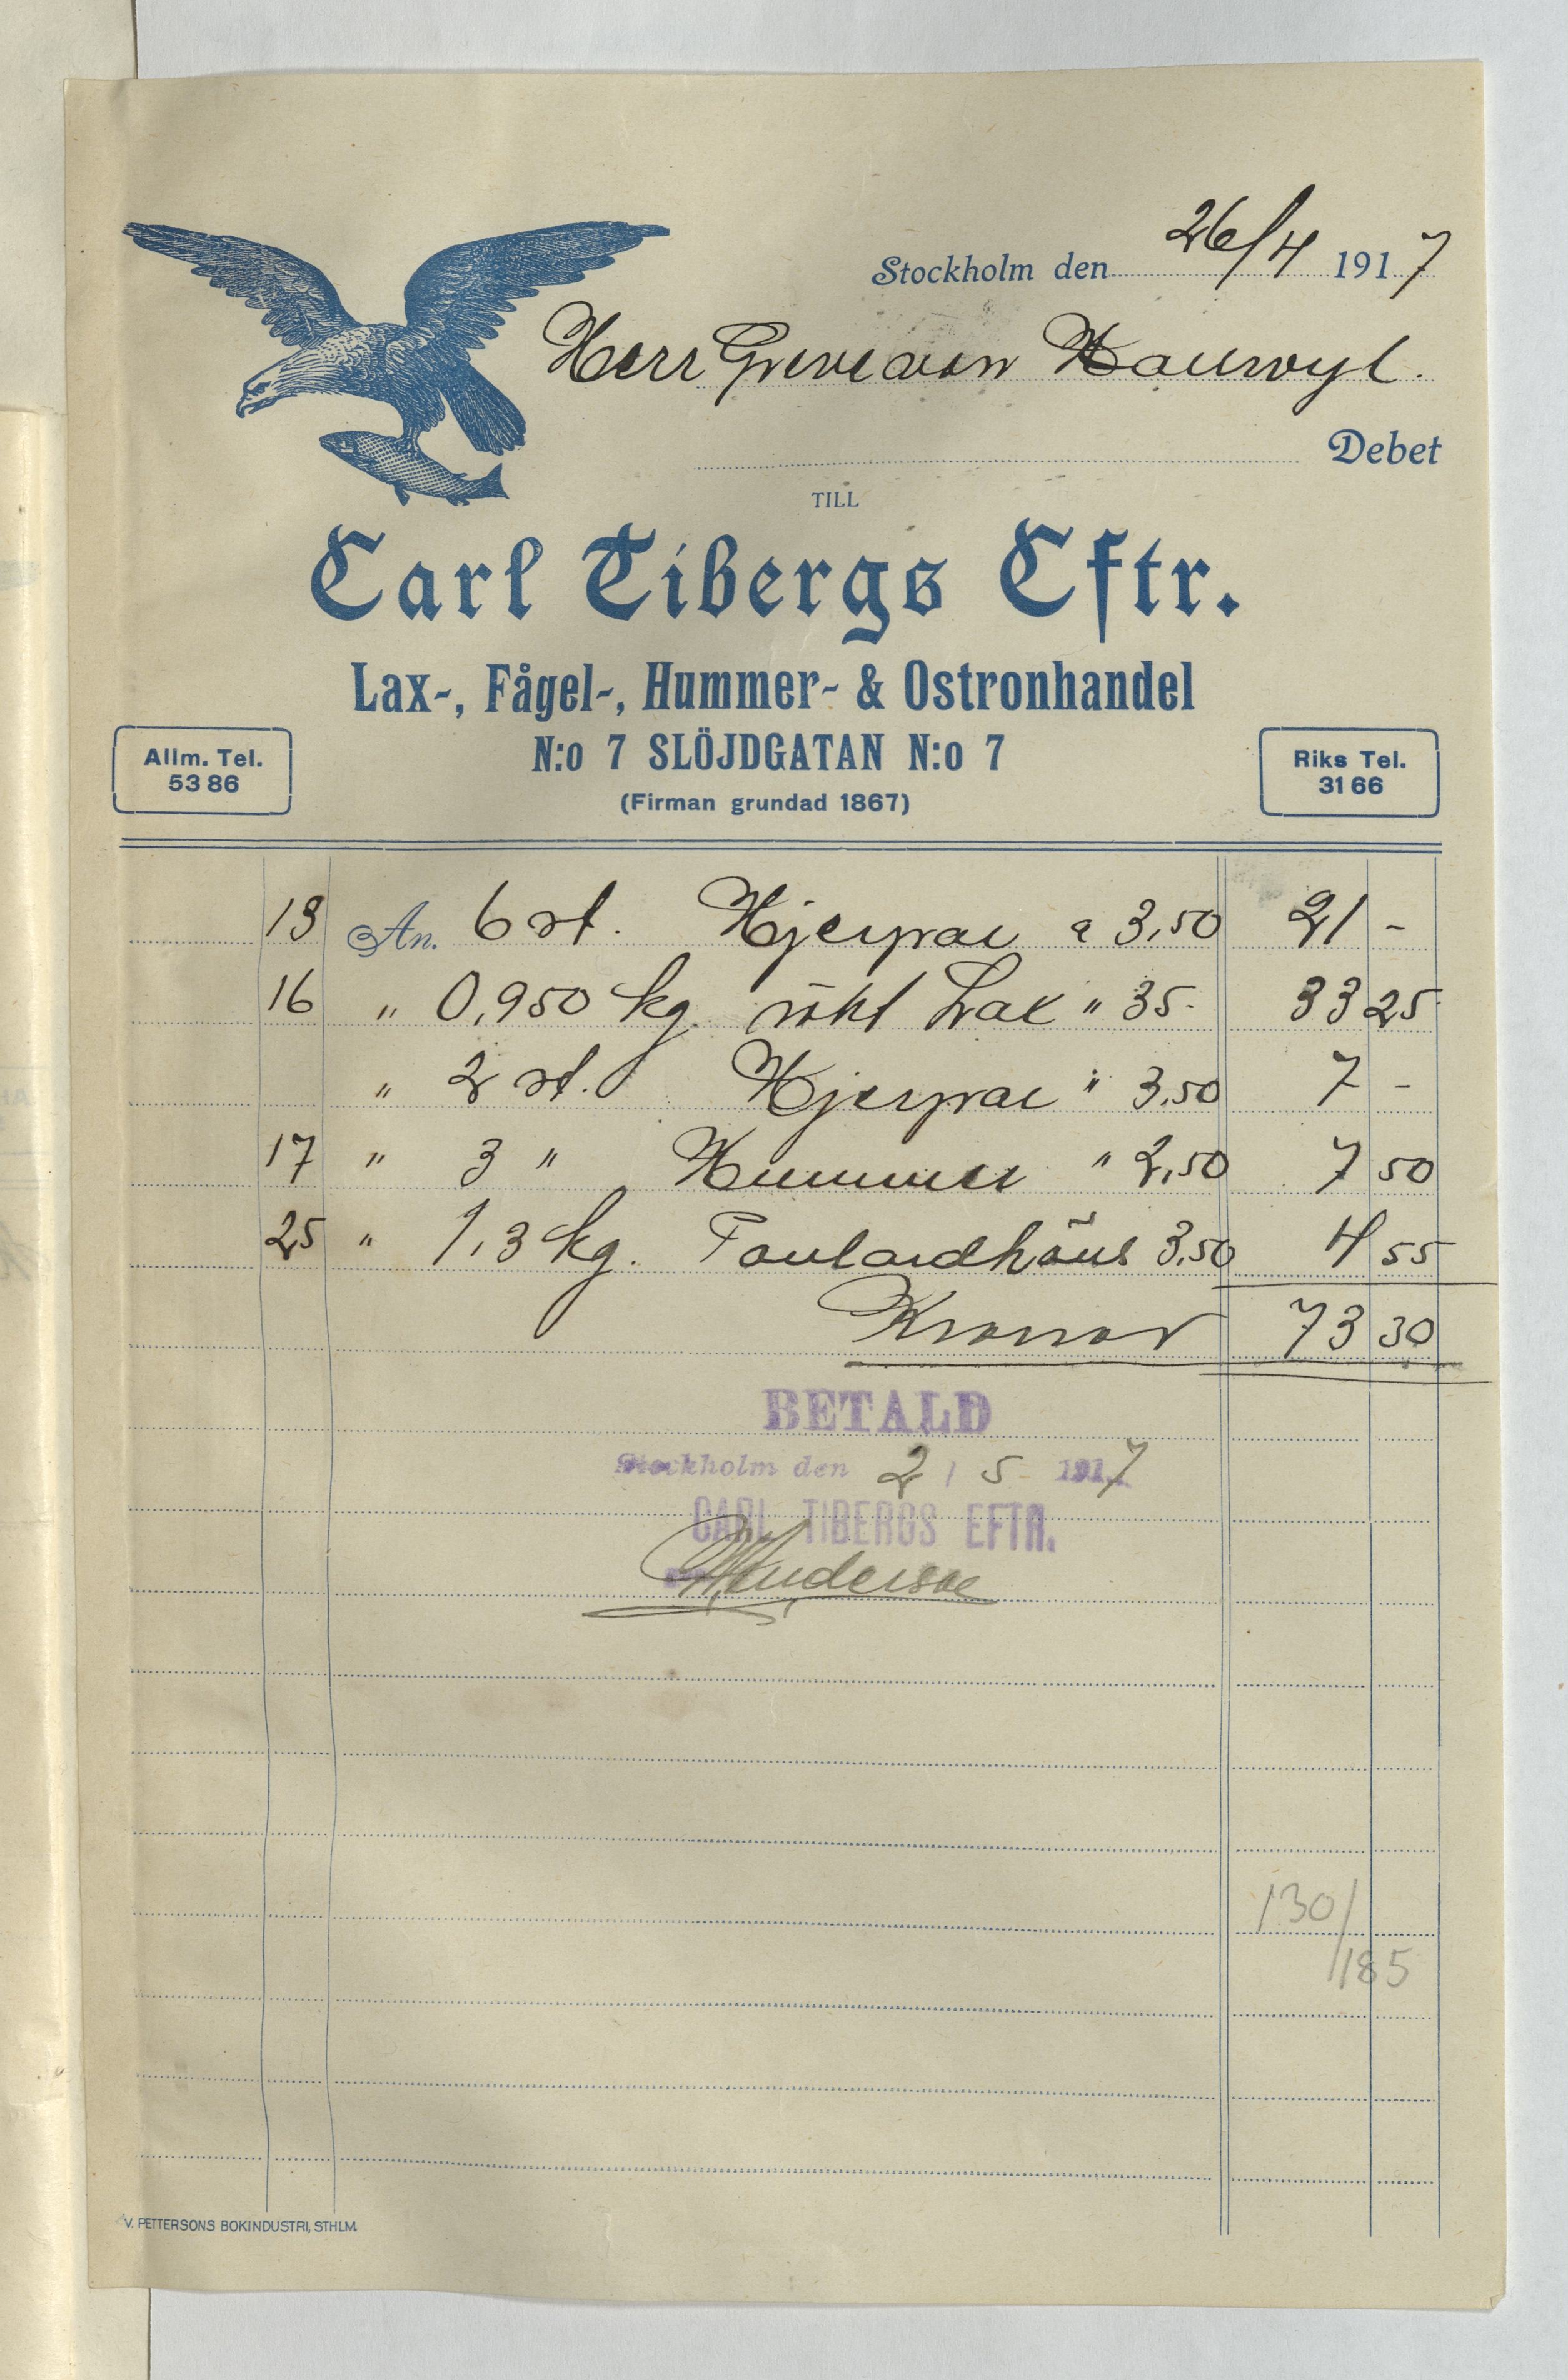 Stockholm den 26/4 1917
Herr Greve von Hallwyl.
Debet
TILL
Carl Tibergs Eftr.
Lax-, Fågel-, Hummer- & Ostronhandel
N:o 7 SLÖJDGATAN N:o 7
(Firman grundad 1867)
Allm. Tel.
53 86
Riks Tel.
31 66
13 An. 6 st. Hjerpar a 3,50 21 -
16 " 0,950 kg. rökt Lax " 35- 33 25
" 2 st. Hjerpar " 3,50 7 -
17 " 3 " Hummer " 2,50 7 50
25 " 1,3 kg. Poulardhöns 3,50 4 55
Kronor 73 30
BETALD
Stockholm den 2 / 5 1917
CARL TIBERGS EFTR.
130/
185
V. PETTERSONS BOKINDUSTRI, STHLM.